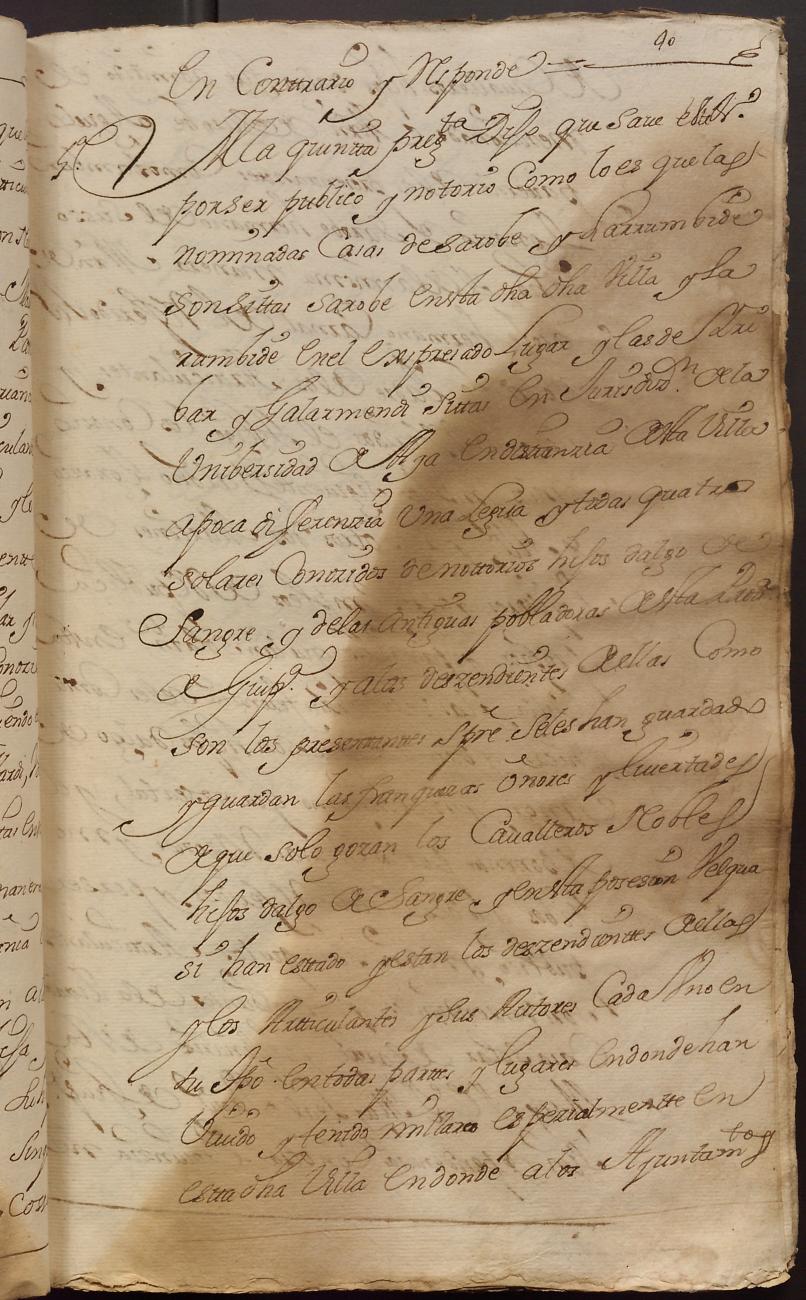 40
En Conttrario y Responde
5ª A la quintta pregta Dijo que save estte tº.
por ser publico y notorio Como lo es que las
nominadas Casas de Sarobe y Larrumbide
son sittas Sarobe en esta dha dha Villa y La
rumbide en el expresado Lugar y las de
bar y Galarmendi sittas En Jurisdizn. de la
Unibersidad de Alza en distanzia de esta Villa
a poca diferenzia Una Legua y todas quattro
solares Conozidos de nottorios hijos dalgo de
Sangre y de las antiguas pobladoras de esta Prov
de Guipª. y a los deszendientes de ellas Como
son los presentantes spre. se les han guardado
y guardan las franquezas onores y livertades
de que solo gozan los Cavalleros Nobles
hijos dalgo de Sangre, y en esta posesion Vel qua
si han estado y estan los deszendientes de ellas
y los Articulantes y sus Autores Cada Uno en
su tpô. en todas parttes y lugares en donde han
Vivido y tenido millares espezialmentte en
esta dha Villa en donde a los Ayuntamtos y